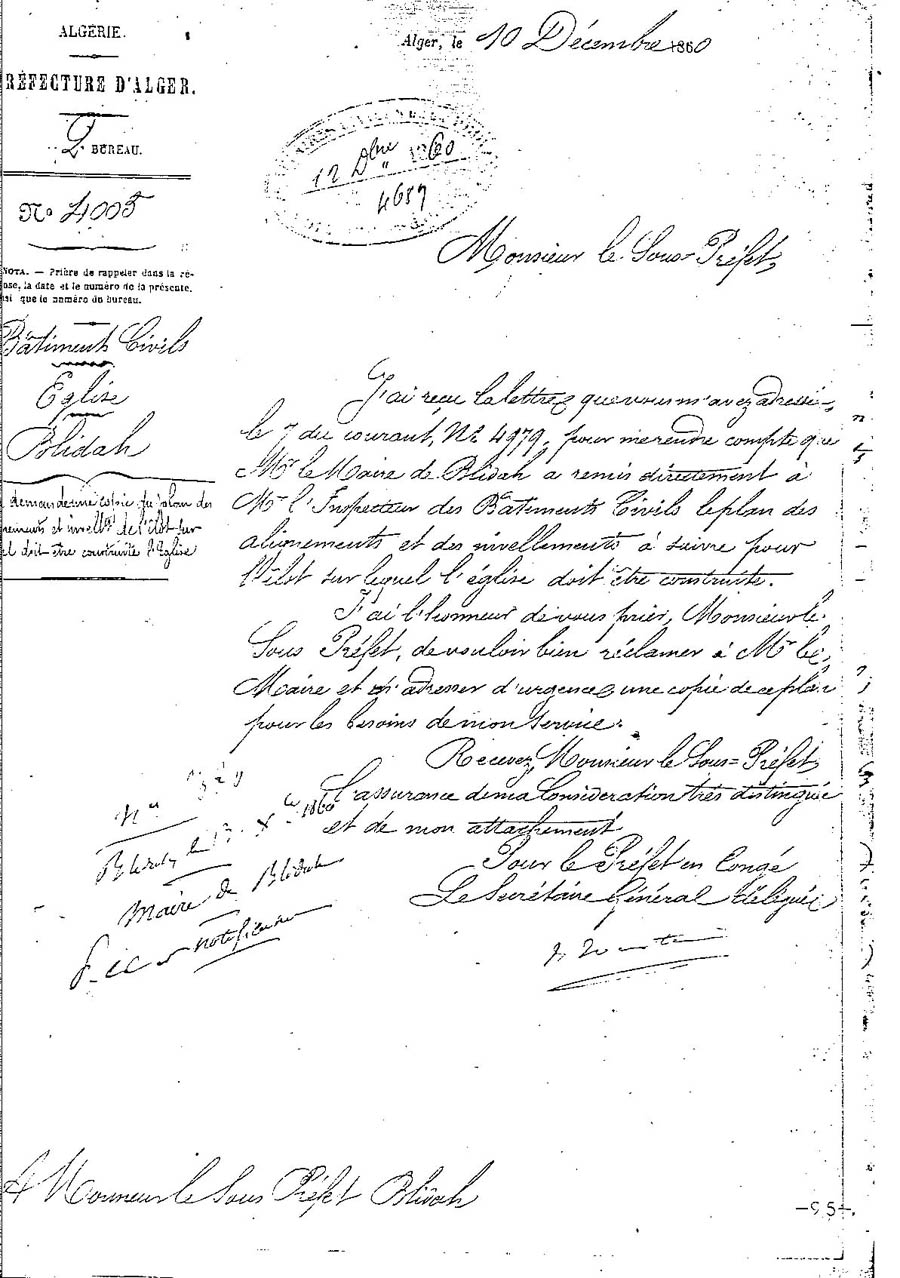 ALGÉRIE.
RÉFECTURE D'ALGER.
2e BUREAU.
No 4005
NOTA. — Prière de rappeler dans la ré-
nse, la date et le numéro de la présente,
si que le numéro du bureau.
Bâtiments Civils
Eglise
Blidah
demande une copie du plan des
nements et nivellts de l'îlot sur
el doit être construite l'Eglise
Alger, le 10 Décembre 1860
12 Dbre 1860
4687
Monsieur le Sous-Préfet,
J'ai reçu la lettre que vous m'avez adressée,
le 7 du courant, No 4979, pour me rendre compte que
Mr le Maire de Blidah a remis directement à
Mr l'Inspecteur des Bâtiments Civils le plan des
alignements et des nivellements à suivre pour
l'îlot sur lequel l'église doit être construite.
J'ai l'honneur de vous prier, Monsieur le
Sous Préfet, de vouloir bien réclamer à Mr le
Maire et m'adresser d'urgence une copie de ce plan
pour les besoins de mon service.
Recevez, Monsieur le Sous-Préfet,
l'assurance de ma Considération très distinguée
et de mon attachement
Pour le Préfet en Congé
Le Secrétaire Général délégué
le Xe 1860
Maire de Blidah
notification
A Monsieur le Sous Préfet Blidah
—95—